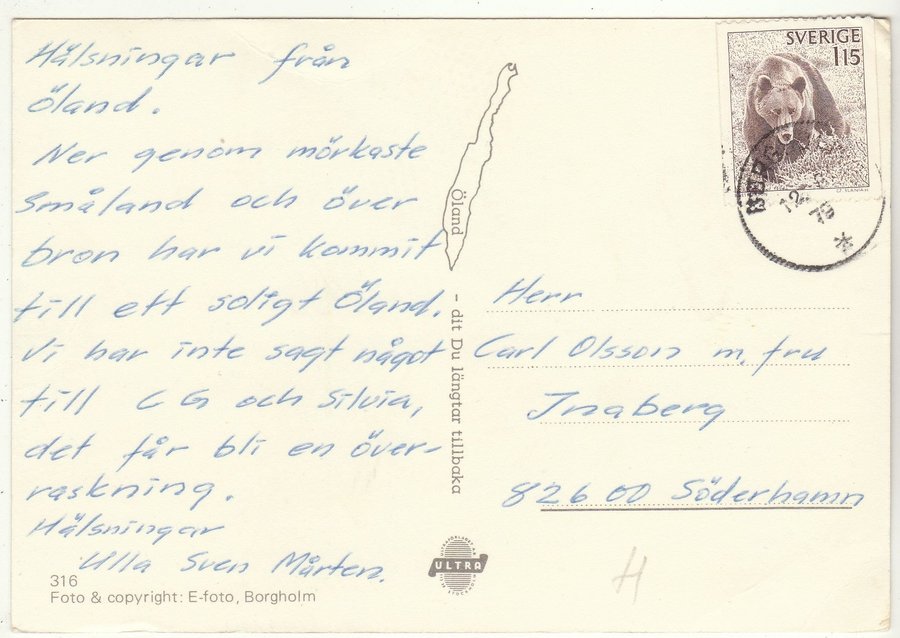 Hälsningar från
Öland.
Ner genom mörkaste
Småland och över
bron har vi kommit
till ett soligt Öland.
Vi har inte sagt något
till C G och Silvia,
det får bli en över-
raskning.
Hälsningar
Ulla Sven Mårten.
316
Foto & copyright: E-foto, Borgholm
Öland
- dit Du längtar tillbaka
ULTRA
SVERIGE
115
Herr
Carl Olsson m. fru
Inaberg
826 00 Söderhamn
H